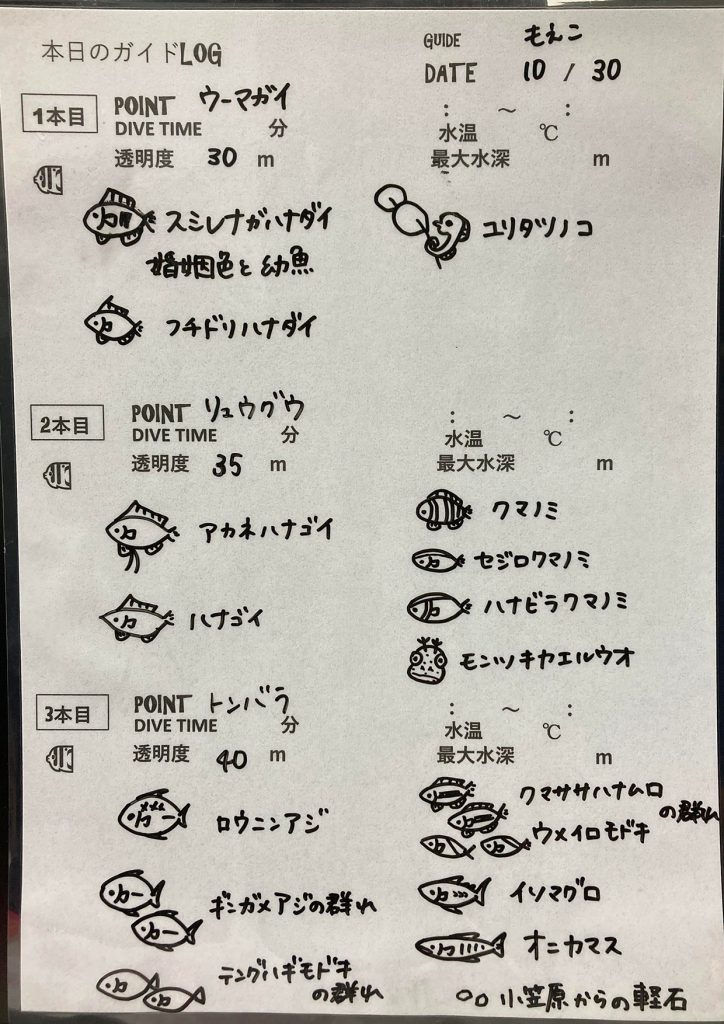 本日のガイドLOG
GUIDE もえこ
DATE 10 / 30
1本目
POINT ウーマガイ
DIVE TIME 分
透明度 30 m
: ～ :
水温 ℃
最大水深 m
スミレナガハナダイ
婚姻色と幼魚
フチドリハナダイ
ユリタツノコ
2本目
POINT リュウグウ
DIVE TIME 分
透明度 35 m
: ～ :
水温 ℃
最大水深 m
アカネハナゴイ
ハナゴイ
クマノミ
セジロクマノミ
ハナビラクマノミ
モンツキカエルウオ
3本目
POINT トンバラ
DIVE TIME 分
透明度 40 m
: ～ :
水温 ℃
最大水深 m
ロウニンアジ
ギンガメアジの群れ
テングハギモドキ
の群れ
クマササハナムロ
の群れ
ウメイロモドキ
イソマグロ
オニカマス
小笠原からの軽石